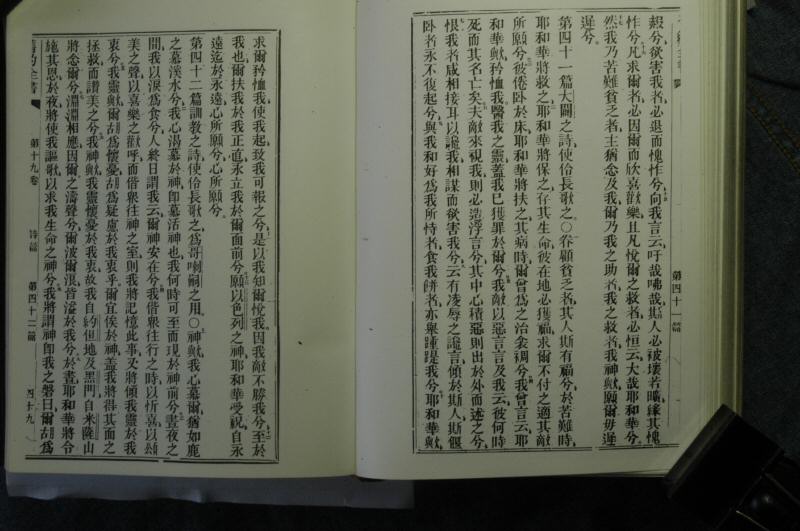 然我乃苦難貧乏者主猶念及我爾乃我之助者我之救者我神歟願爾毋遲
遲兮
第四十一篇大闢之詩使伶長歌之〇眷顧貧乏者其人斯有福兮於苦難時
耶和華將救之耶和華將保之存其生命彼在地必獲福求爾不付之適其敵
所願兮彼倦臥於床耶和華將扶之其病時爾曾爲之治衾裯兮我曾言云耶
和華歟矜恤我醫我之靈蓋我已獲罪於爾兮我敵以惡言言及我云彼何時
死而其名亡矣夫敵來視我則必造浮言兮其中心積惡則出於外而述之兮
恨我者咸相接耳以讒我相謀而欲害我兮云有凌辱之讒言傾於斯人斯偃
臥者永不復起兮與我和好爲我所恃者食我餅者亦舉踵踶我兮耶和華歟
第四十一篇
求爾矜恤我使我起致我可報之兮是以我知爾悅我因我敵不勝我兮至於
我也爾扶我於我正直永立我於爾面前兮願以色列之神耶和華受祝自永
遠迄於永遠心所願兮心所願兮
第四十二篇訓教之詩使伶長歌之爲哥喇嗣之用〇神歟我心慕爾猶如鹿
之慕溪水兮我心渴慕於神卽慕活神也我何時可至而現於神前兮晝夜之
間我以淚爲食兮人終日謂我云爾神安在兮我偕衆往行之時以忻喜以頌
美之聲以喜樂之歡呼而偕衆往神之室則我將記憶此事又將傾我靈於我
衷兮我靈歟爾胡爲懷憂胡爲疑慮於我衷乎爾宜俟於神蓋我將得其面之
拯救而讚美之兮我神歟我靈懷憂於我衷故我自約但地及黑門自米薩山
將念爾兮淵淵相應因爾之濤聲兮爾波爾浪皆溢於我兮於晝耶和華將令
施其恩於夜將使我謳歌以求我生命之神兮我將謂神卽我之磐曰爾胡爲
第十九卷 詩篇 第四十二篇 四十九